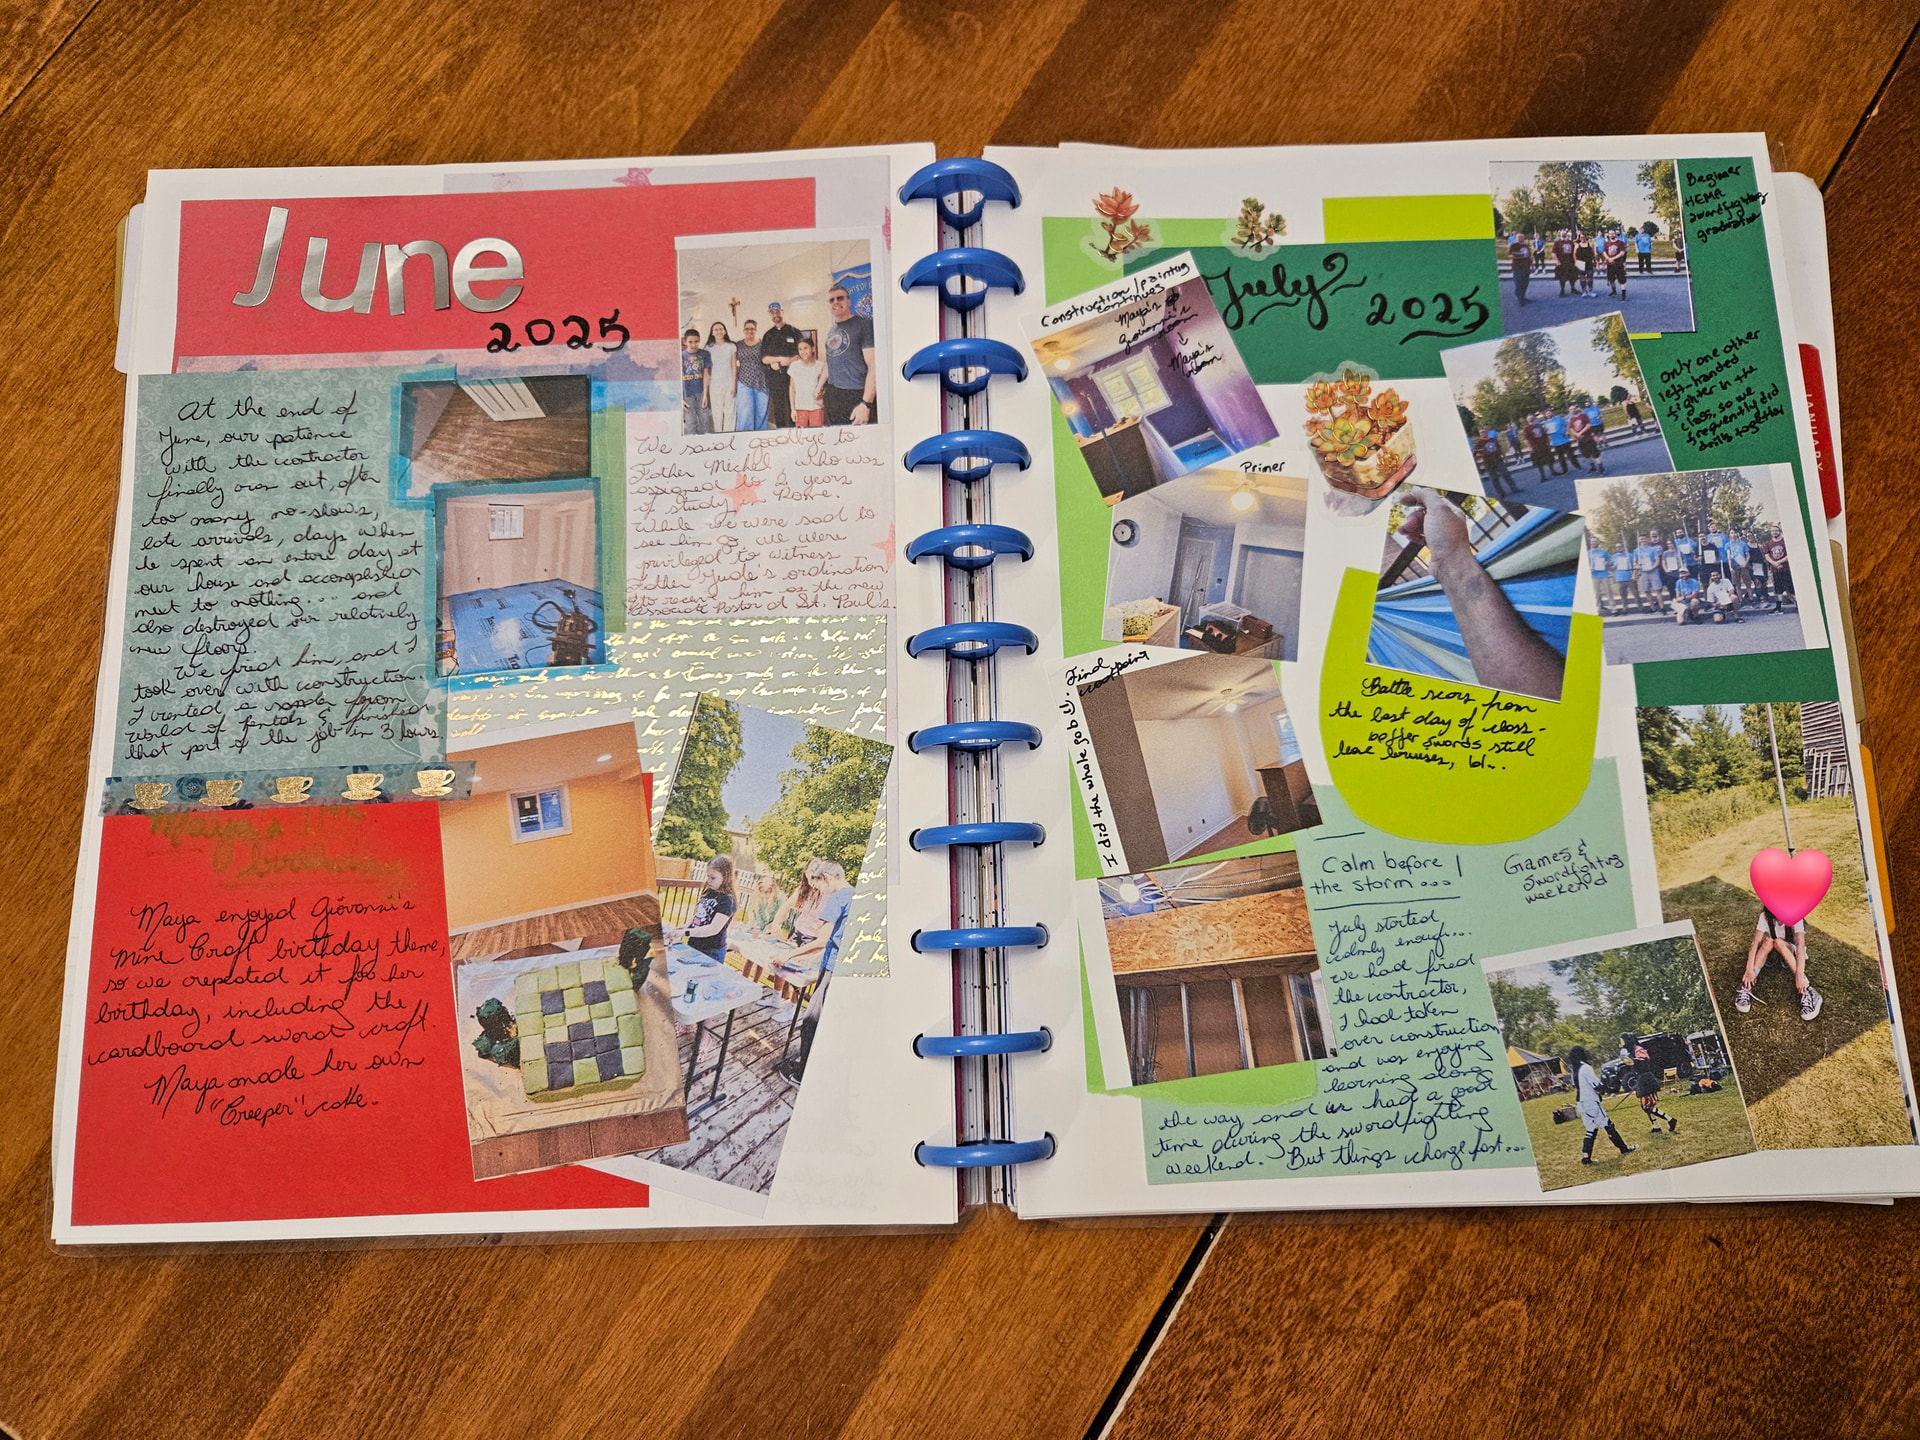 June
2025
At the end of
June, our patience
with the contractor
finally ran out, after
too many no-shows,
late arrivals, days when
he spent an entire day at
our house and accomplished
next to nothing... and
also destroyed our relatively
new floors.
We fired him, and I
took over with construction.
I rented a sander from
world of rentals & finished
that part of the job in 3 hours.
We said goodbye to
Father Michel, who was
assigned to 2 years
of study in Rome.
While we were sad to
see him go, we were
privileged to witness
Father Jude's ordination,
to receive him as the new
Associate Pastor at St. Paul's.
Maya's 11th
birthday
Maya enjoyed Giovanni's
Mine Craft birthday theme,
so we repeated it for her
birthday, including the
cardboard sword craft.
Maya made her own
"Creeper" cake.
July
2025
Construction/painting
continues
Maya's
Giovanni's
room
↓
Maya's
room
Primer
Final
coat paint
I did the whole job
Beginner
HEMA
swordfighting
graduation
Only one other
left-handed
fighter in the
class, so we
frequently did
drills together
Battle scars from
the last day of class -
boffer swords still
leave bruises, lol...
Calm before
the storm...
Games &
swordfighting
weekend
July started
calmly enough...
we had fired
the contractor,
I had taken
over construction
and was enjoying
learning along
the way and we had a good
time during the swordfighting
weekend. But things change fast...
JANUARY